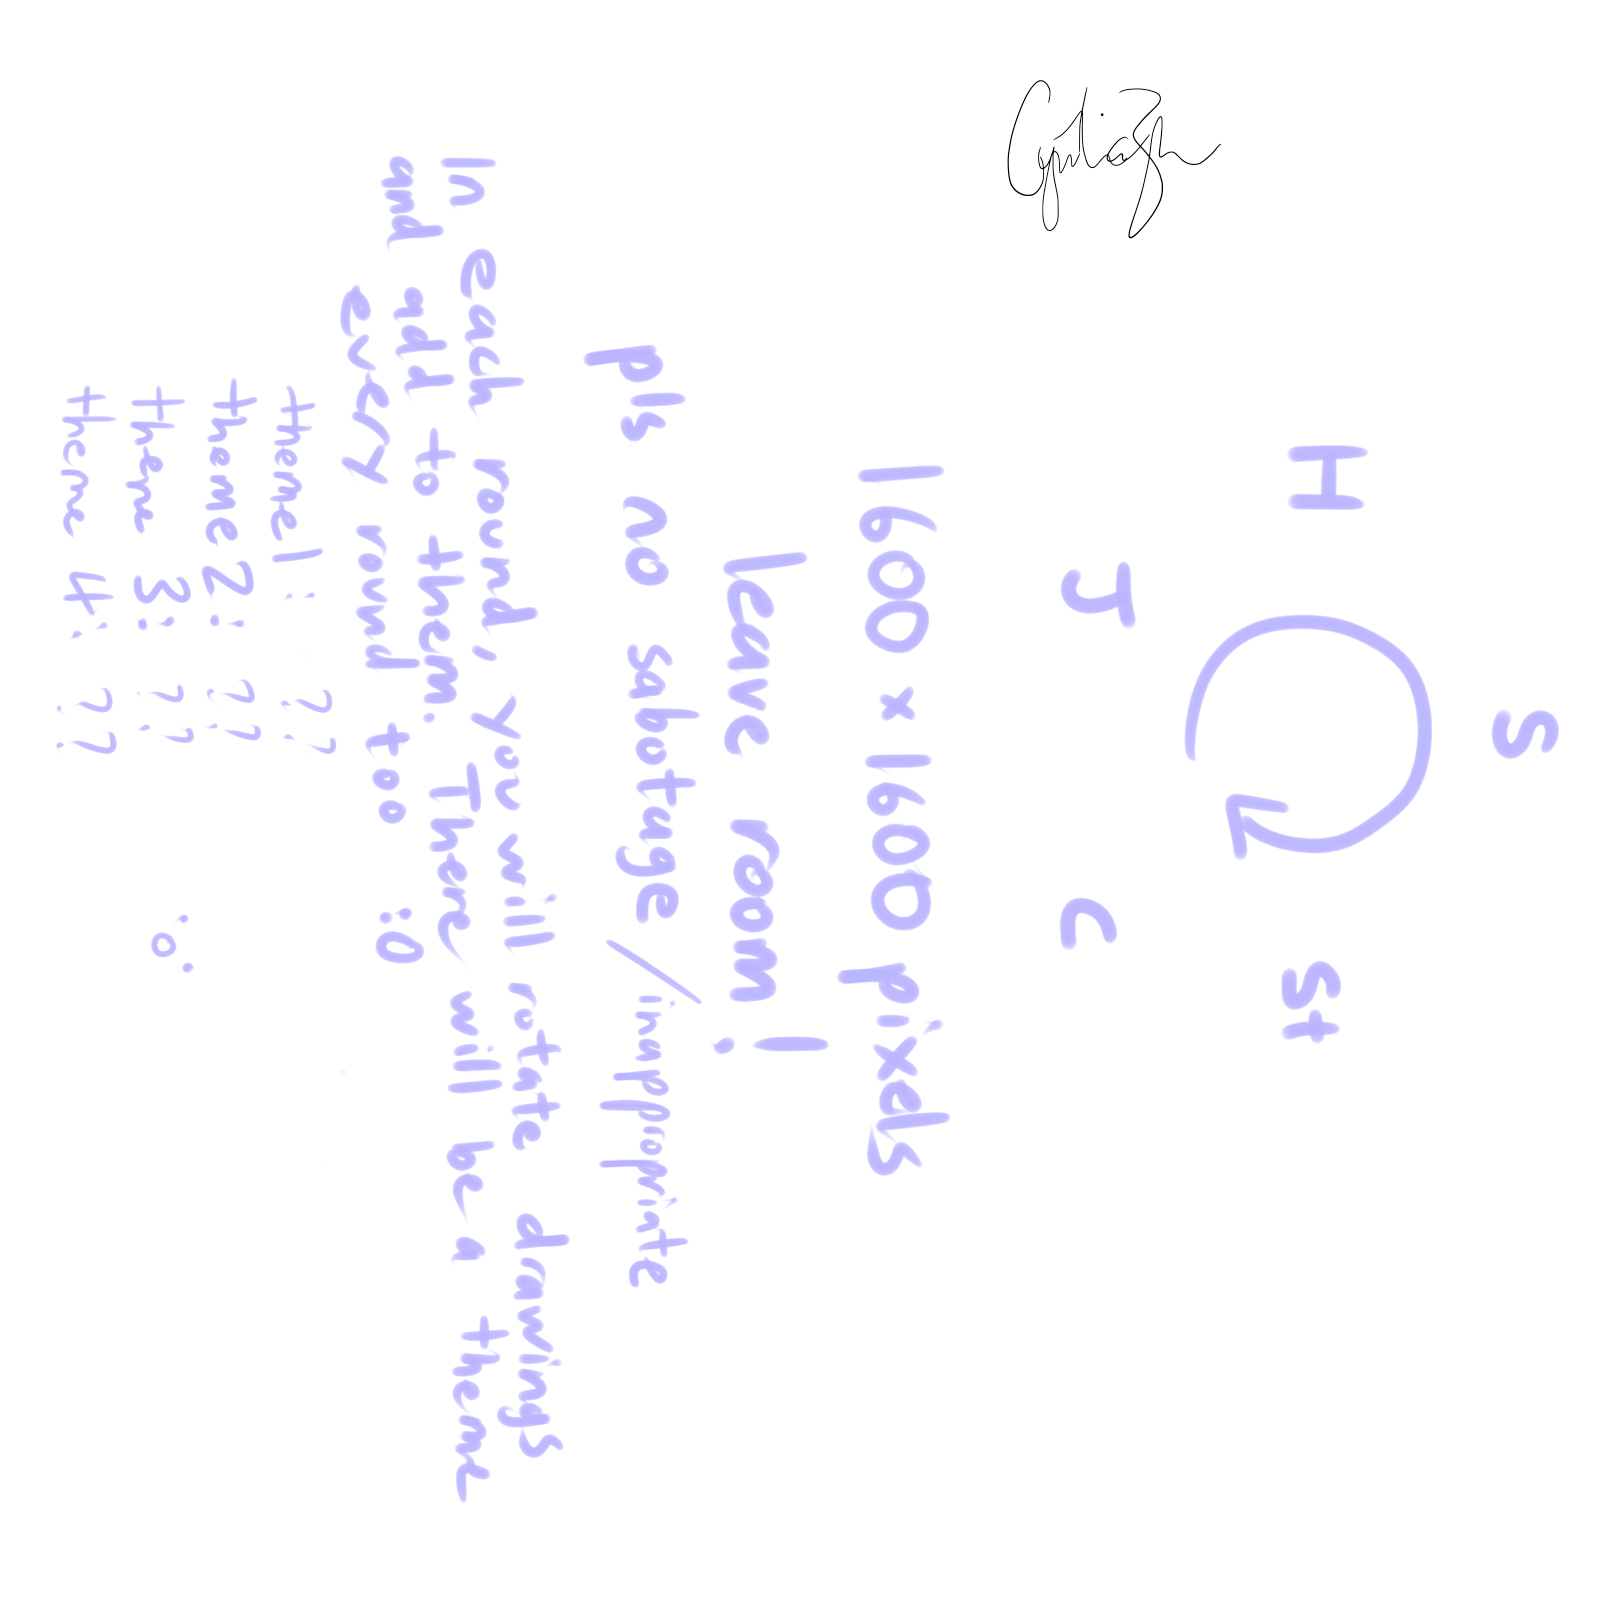 S
H St
J C
1600 x 1600 pixels
leave room!
pls no sabotage / inappropriate
In each round, you will rotate drawings
and add to them. There will be a theme
every round too :O
theme 1: ??
theme 2: ??
theme 3: ??
theme 4: ??